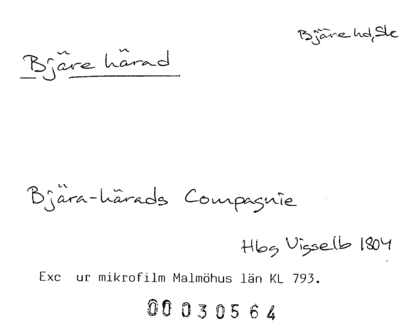 Bjäre hd, Sk
Bjäre härad
Bjära-härads Compagnie
Hbg Visselb 1804
Exc ur mikrofilm Malmöhus län KL 793.
00 030564